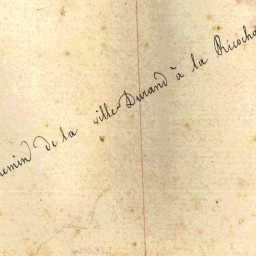 emin de la ville Durand à la Ricocha